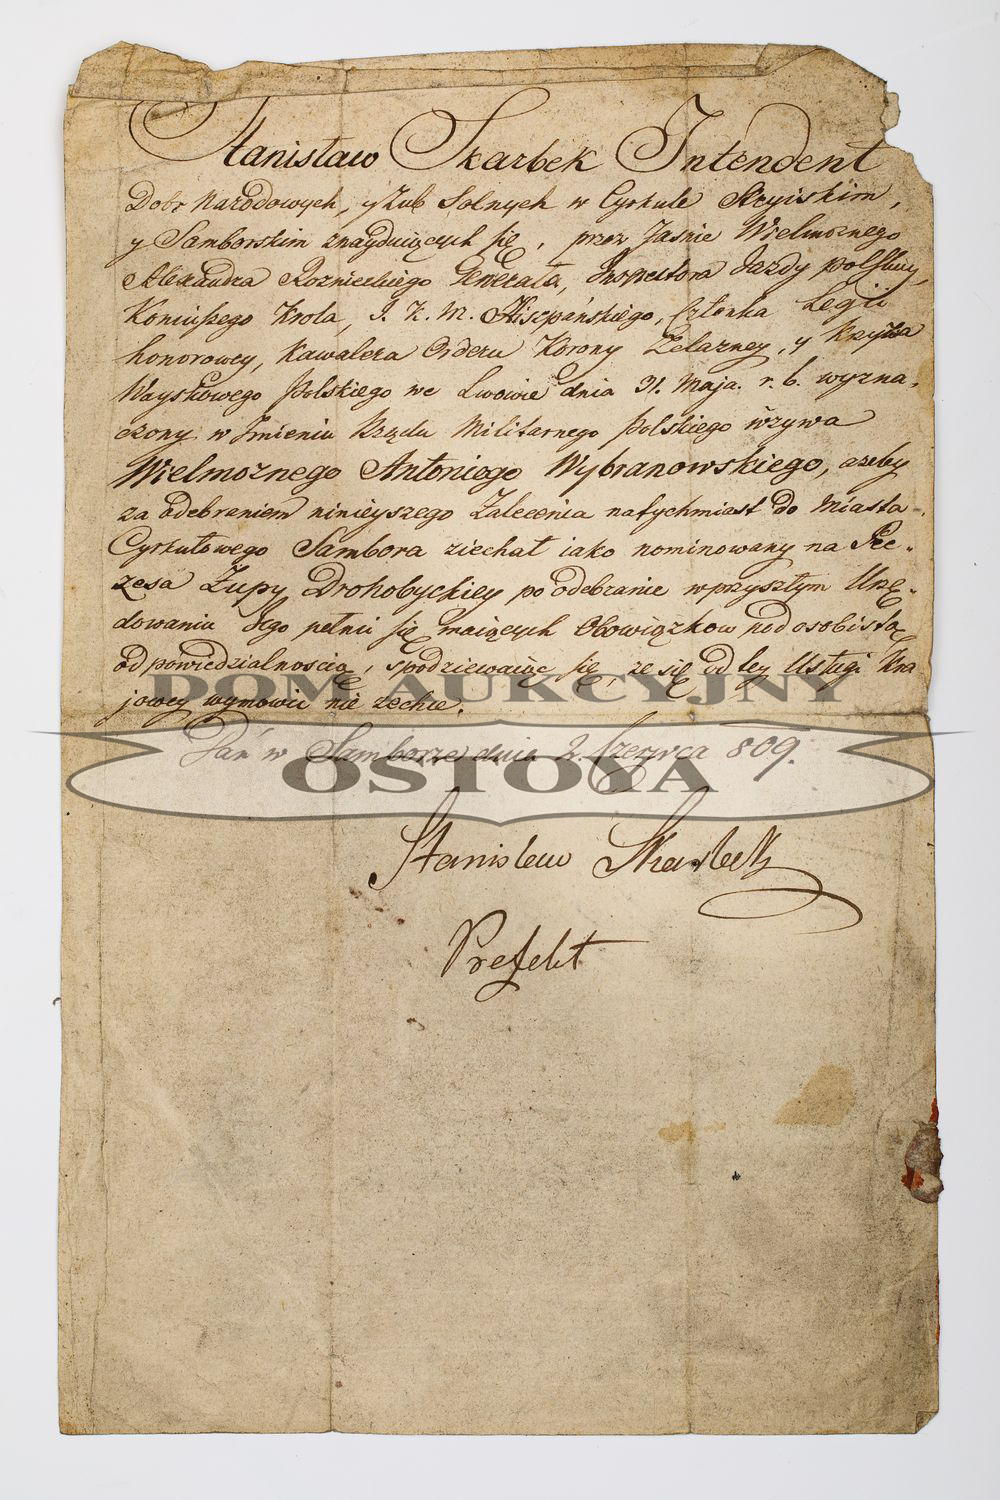 Stanisław Skarbek Intendent
Dobr Narodowych, y Żub Solnych w Cyrkule Stryiskim,
y Samborskim znayduiących się, przez Jaśnie Wielmoznego
Alexandra Roznieckiego Generała, Inspectora Jazdy polskiey,
Koniuszego Krola, J. K. M. Hiszpańskiego, Członka Legii
honorowey, Kawalera Orderu Korony Żelazney, y Krzyża
Woyskowego Polskiego we Lwowie dnia 31. Maja. r. b. wyzna,
czony w Imieniu Rządu Militarnego Polskiego wzywa
Wielmoznego Antoniego Wybranowskiego, azeby
za odebraniem ninieyszego Zalecenia natychmiast do Miasta
Cyrkułowego Sambora ziechał iako nominowany na Pre-
zesa Żupy Drohobyckiey po odebranie w przyszłym Urzę-
dowaniu Jego pełnić się maiących Obowiązkow pod osobistą
odpowiedzialnoscią, spodziewaiąc się, ze się od tey Usługi Kra
jowey wymowić nie zechce.
Dań w Samborze dnia 2. Czerwca 809.
DOM AUKCYJNY
OSTOYA
Stanisław Skarbek
Prefekt